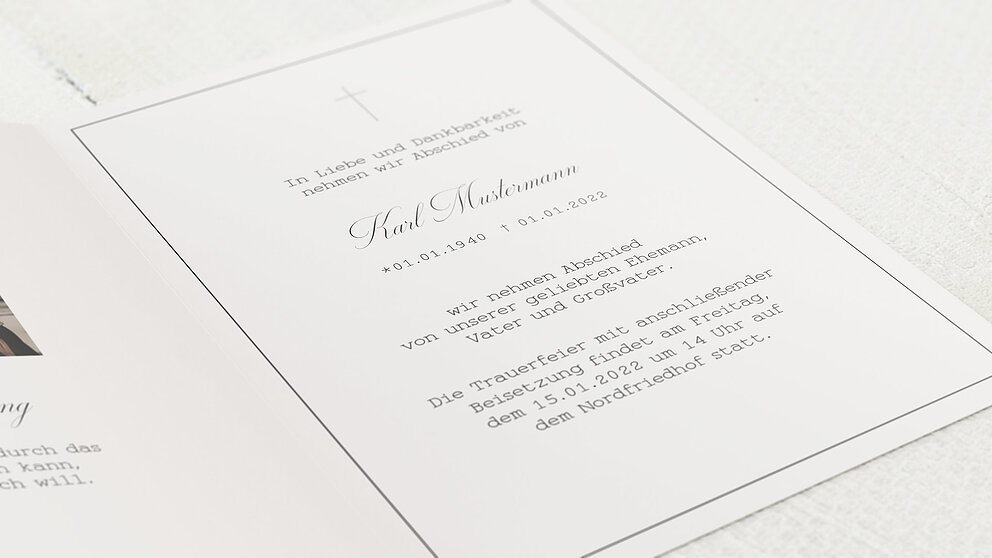 ng
durch das
kann,
ch will.
In Liebe und Dankbarkeit
nehmen wir Abschied von
Karl Mustermann
*01.01.1940 † 01.01.2022
wir nehmen Abschied
von unserer geliebten Ehemann,
Vater und Großvater.
Die Trauerfeier mit anschließender
Beisetzung findet am Freitag,
dem 15.01.2022 um 14 Uhr auf
dem Nordfriedhof statt.